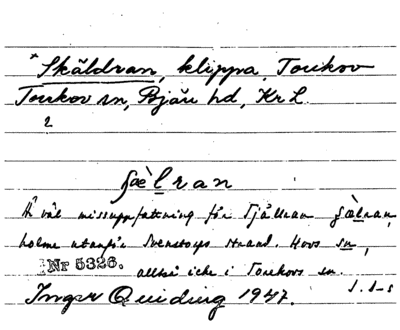 * Skäldran, klippa, Torekov
Torekov sn, Bjäre hd, Kr L.
2
ʃæ̀lran
Är väl missuppfattning för Tjällran ʃæ̀lran,
holme utanför Svenstorps strand. Hovs sn,
Nr 5326. alltså icke i Torekovs sn.
Inger Quiding 1947. I. I-s